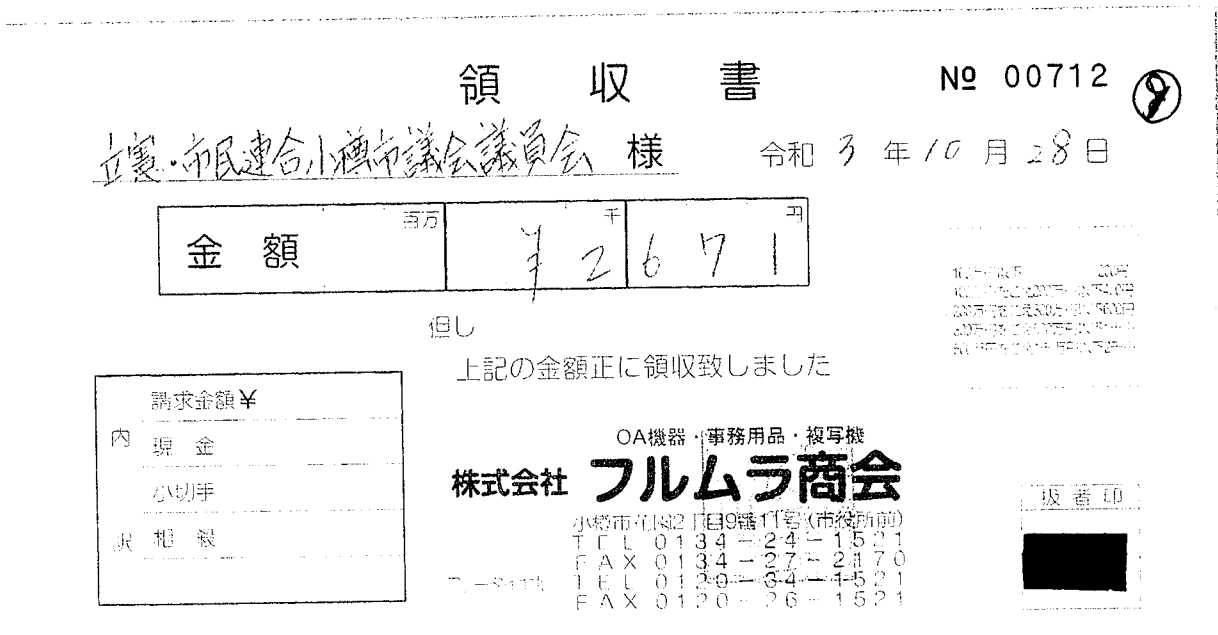 領収書 № 00712
立憲・市民連合小樽市議会議員会 様 令和 3 年 10 月 28 日
金額 百万 千 円
¥2671
但し
上記の金額正に領収致しました
内訳
請求金額¥
現金
小切手
相殺
OA機器・事務用品・複写機
株式会社 フルムラ商会
小樽市花園2丁目9番11号(市役所前)
TEL 0134-24-1521
FAX 0134-27-2170
TEL 0120-34-1521
FAX 0120-26-1521
扱者印